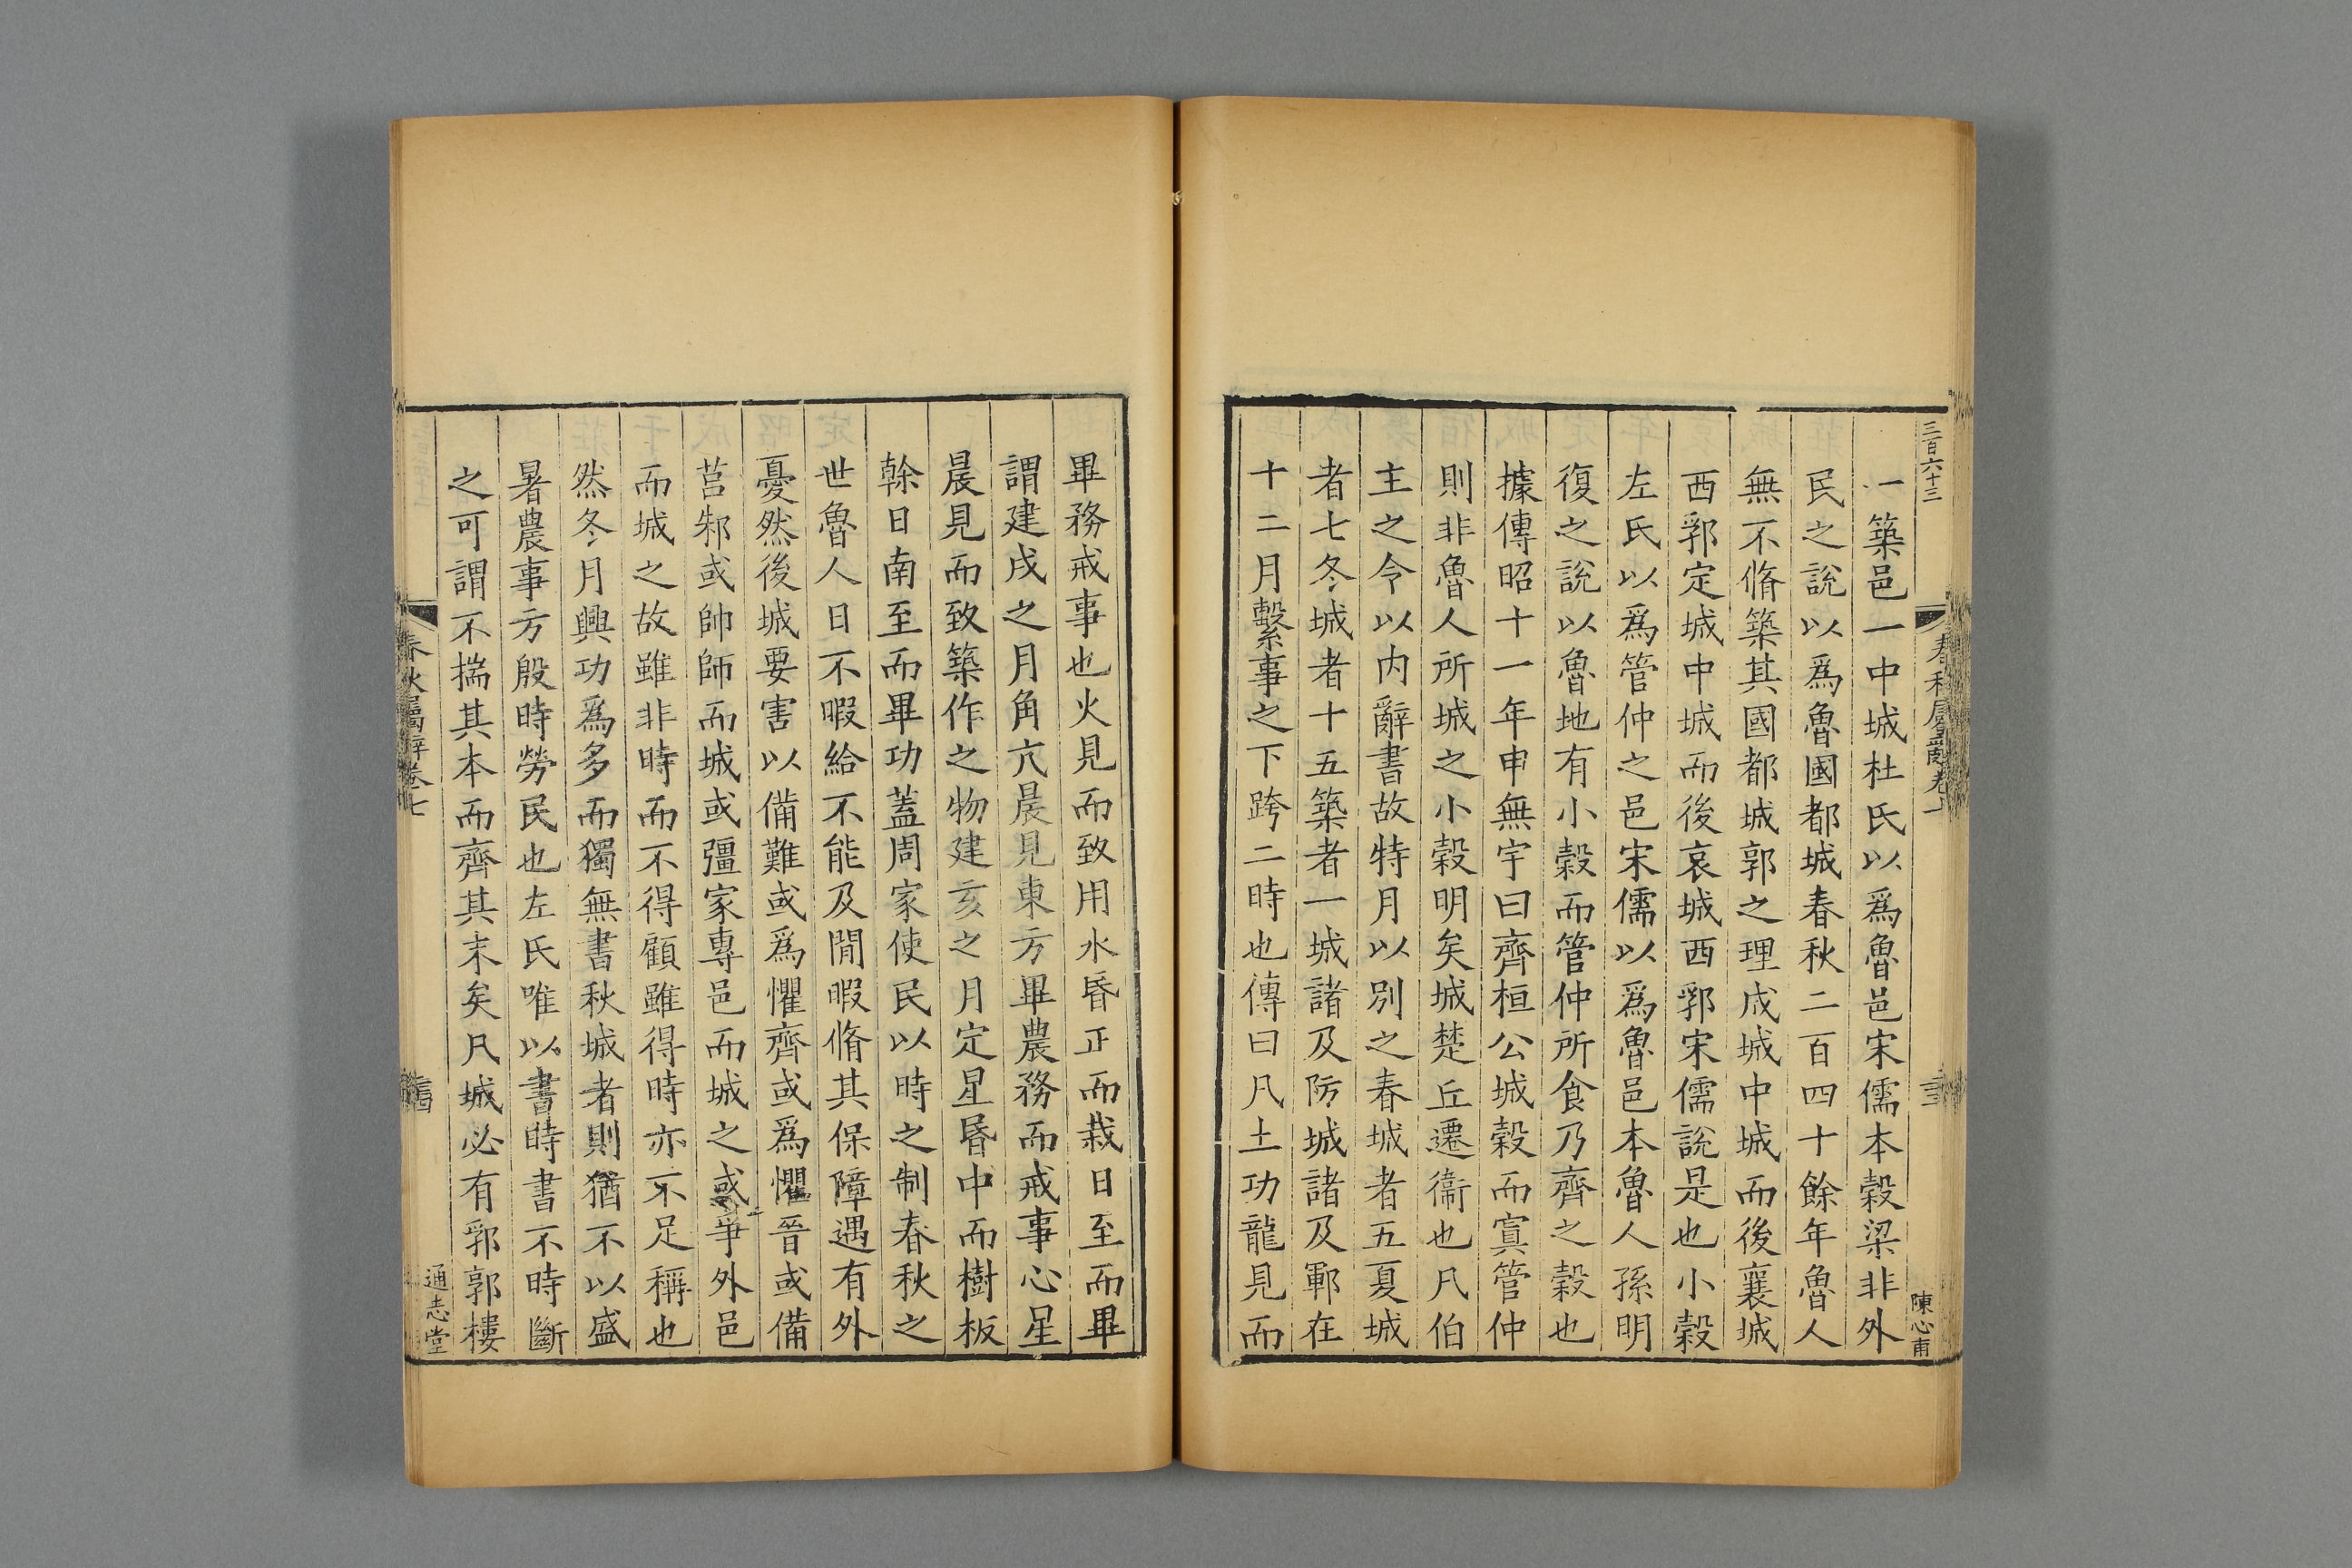 三百六十三
春秋屬辭卷七
三
陳心甫
一築邑一中城杜氏以爲魯邑宋儒本穀梁非外
民之說以爲魯國都城春秋二百四十餘年魯人
無不脩築其國都城郭之理成城中城而後襄城
西郛定城中城而後哀城西郛宋儒說是也小穀
左氏以爲管仲之邑宋儒以爲魯邑本魯人孫明
復之說以魯地有小穀而管仲所食乃齊之穀也
據傳昭十一年申無宇曰齊桓公城穀而寘管仲
則非魯人所城之小穀明矣城楚丘遷衞也凡伯
主之令以内辭書故特月以別之春城者五夏城
者七冬城者十五築者一城諸及防城諸及鄆在
十二月繫事之下跨二時也傳曰凡土功龍見而
畢務戒事也火見而致用水昏正而栽日至而畢
謂建戌之月角亢晨見東方畢農務而戒事心星
晨見而致築作之物建亥之月定星昏中而樹板
榦日南至而畢功蓋周家使民以時之制春秋之
世魯人日不暇給不能及閒暇脩其保障遇有外
憂然後城要害以備難或爲懼齊或爲懼晉或備
莒邾或帥師而城或彊家專邑而城之或爭外邑
而城之故雖非時而不得顧雖得時亦不足稱也
然冬月興功爲多而獨無書秋城者則猶不以盛
暑農事方殷時勞民也左氏唯以書時書不時斷
之可謂不揣其本而齊其末矣凡城必有郛郭樓
春秋屬辭卷七
通志堂